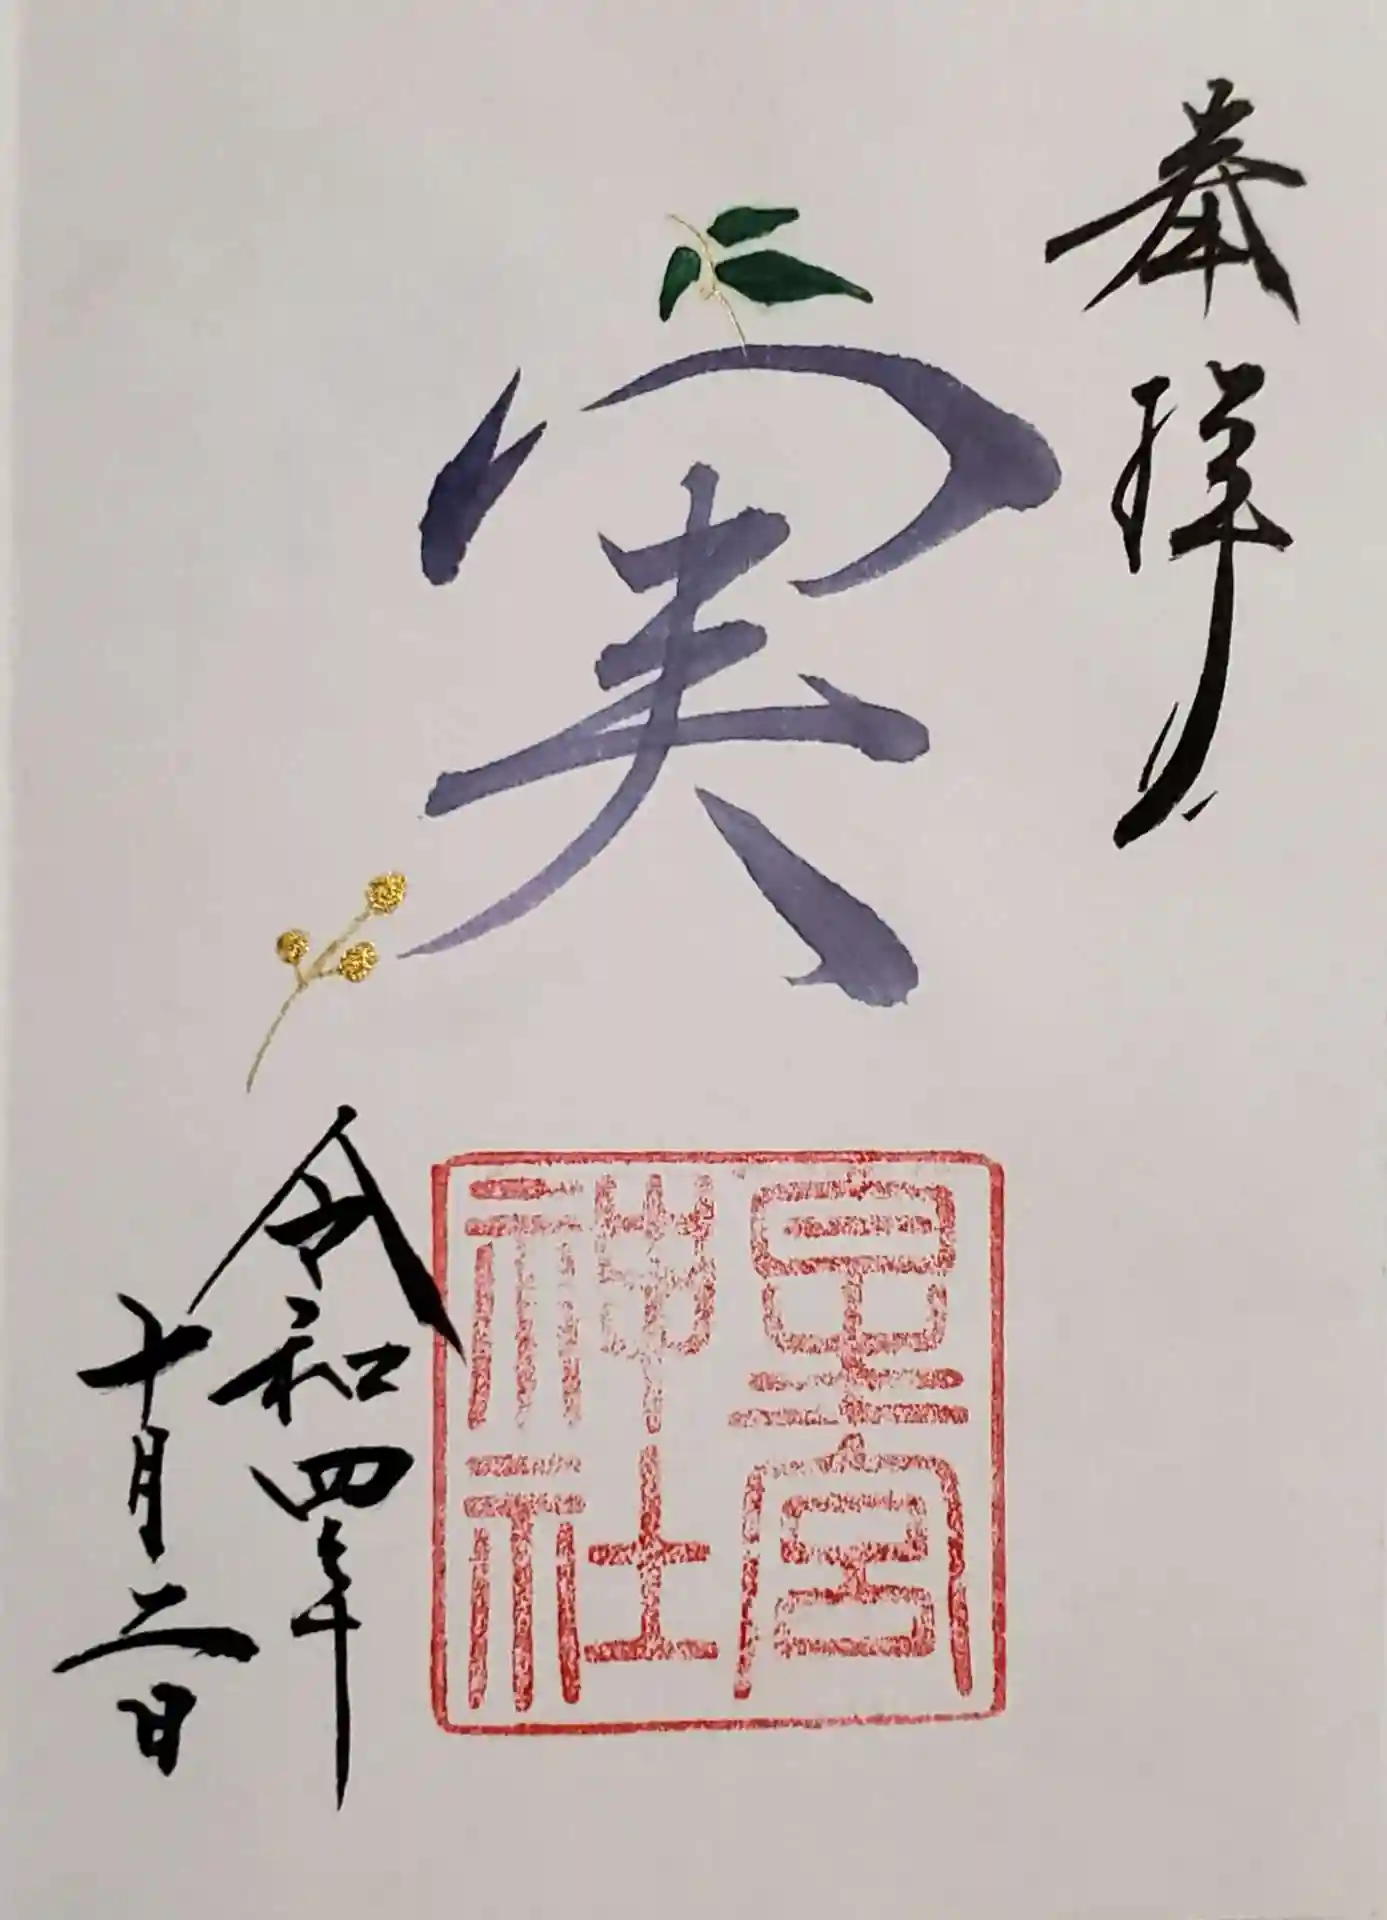 奉拝
実
星宮
神社
令和四年
十月二日